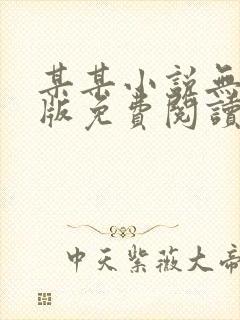 某某小说無
版免費閱讀
中天紫薇大帝